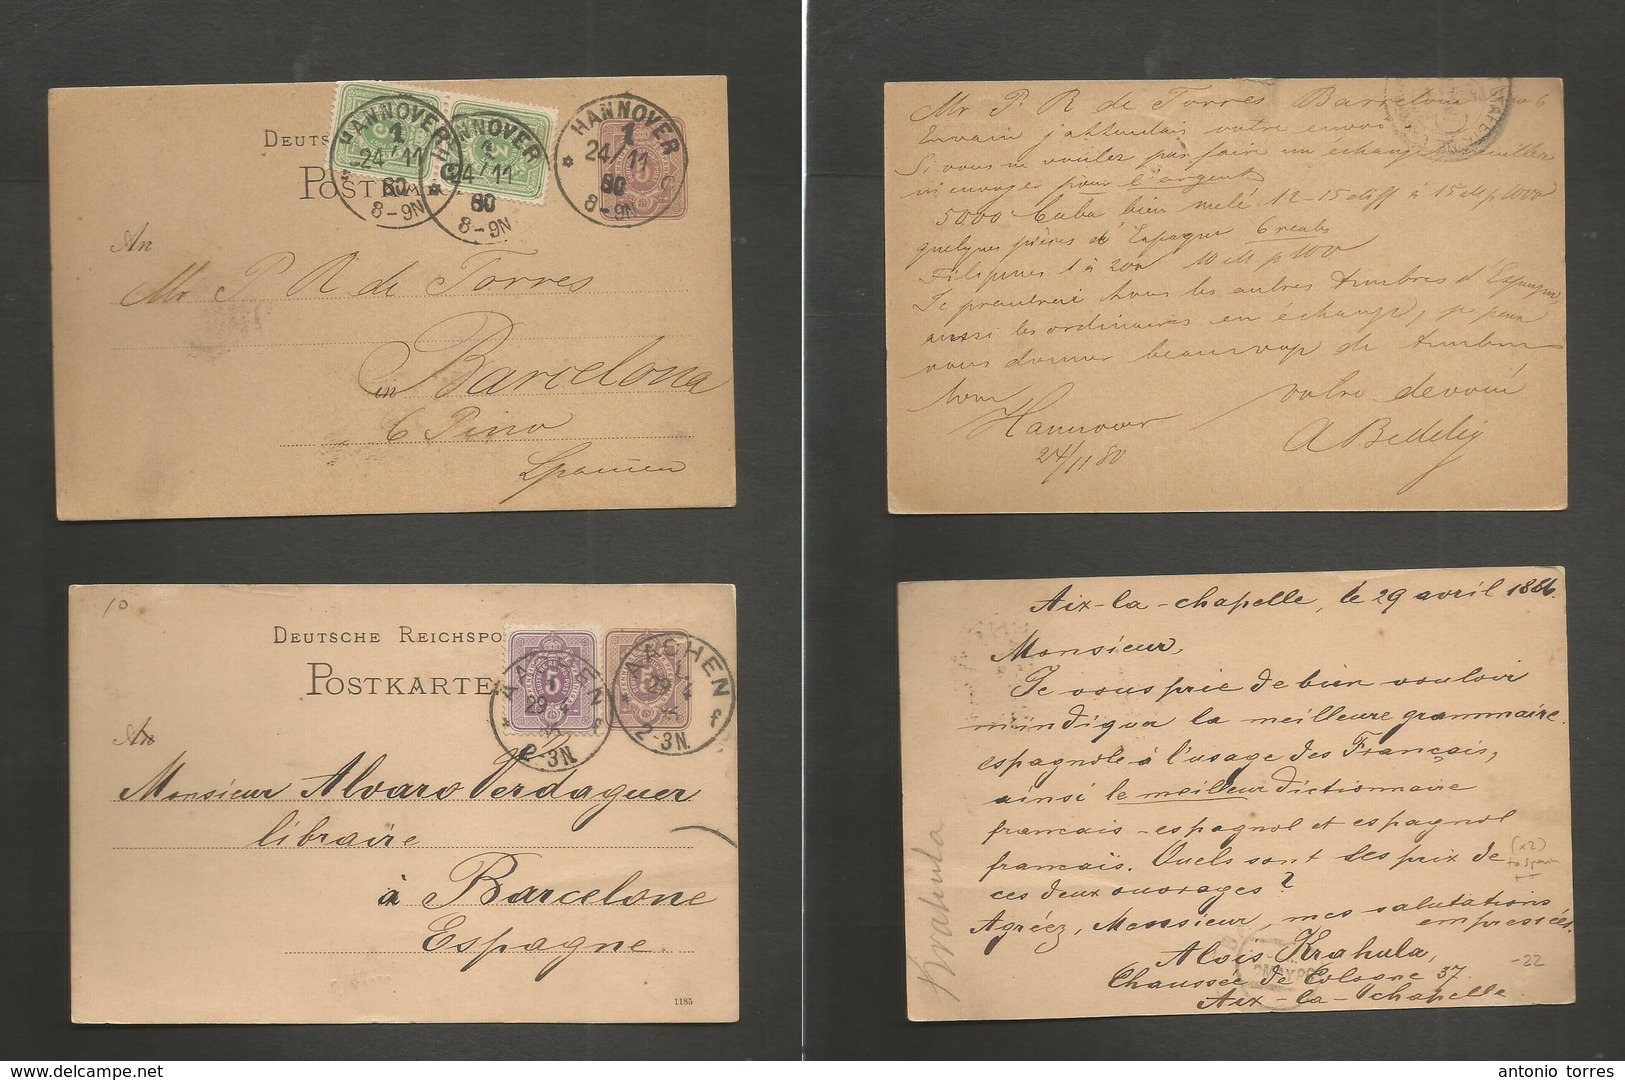 DEUTS
POSTKA
HANNOVER
1
24/11
80
8-9N
HANNOVER
1
24/11
80
8-9N
HANNOVER
1
24/11
80
8-9N
An
Mr P. R de Torres
in Barcelona
6 Pino
Spanien
Mr P. R de Torres Barcelona
Envain j'attendais votre envoi
Si vous ne voulez pas fair un échange veuillez
m'envoyer pour l'argent
5000 Cuba bien melé 12-15 diff à 15 M p 1000
quelques pièces d'Espagne 6 reales
Filipines 1 à 200 10 M p 100
Je prendrai tous les autres timbres d'Espagne,
aussi les ordinaires en échange, je peux
vous donner beaucoup de timbres
votre devoué
Hannover
24/11 80
10
DEUTSCHE REICHSPO
POSTKARTE
5
5
AACHEN
29 4
2-3N.
AACHEN
1
29 4
f
2-3N.
An
Monsieur Alvaro Verdaguer
libraire
à Barcelone
Espagne.
1185
Aix-la-chapelle, le 29 avril 1886.
Monsieur,
Je vous prie de bien vouloir
m'indiquer la meilleure grammaire
espagnole à l'usage des Français,
ainsi le meilleur dictionnaire
français-espagnol et espagnol
français. Quels sont les prix de
ces deux ouvrages?
Agréez, Monsieur, mes salutations
empressées.
Alois Krahula,
Chaussée de Cologne 37.
Aix-la-chapelle.
Krahula
(x2)
to Spain
-22
delcampe.net
antonio torres